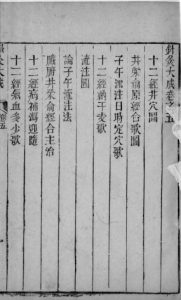 針灸大成卷之五
十二經井穴圖
井滎俞原經合歌圖
子午流注日時定穴歌
十二經納干支歌
流注圖
論子午流注法
臟腑井滎俞經合主治
十二經病補瀉迎隨
十二經氣血多少歌